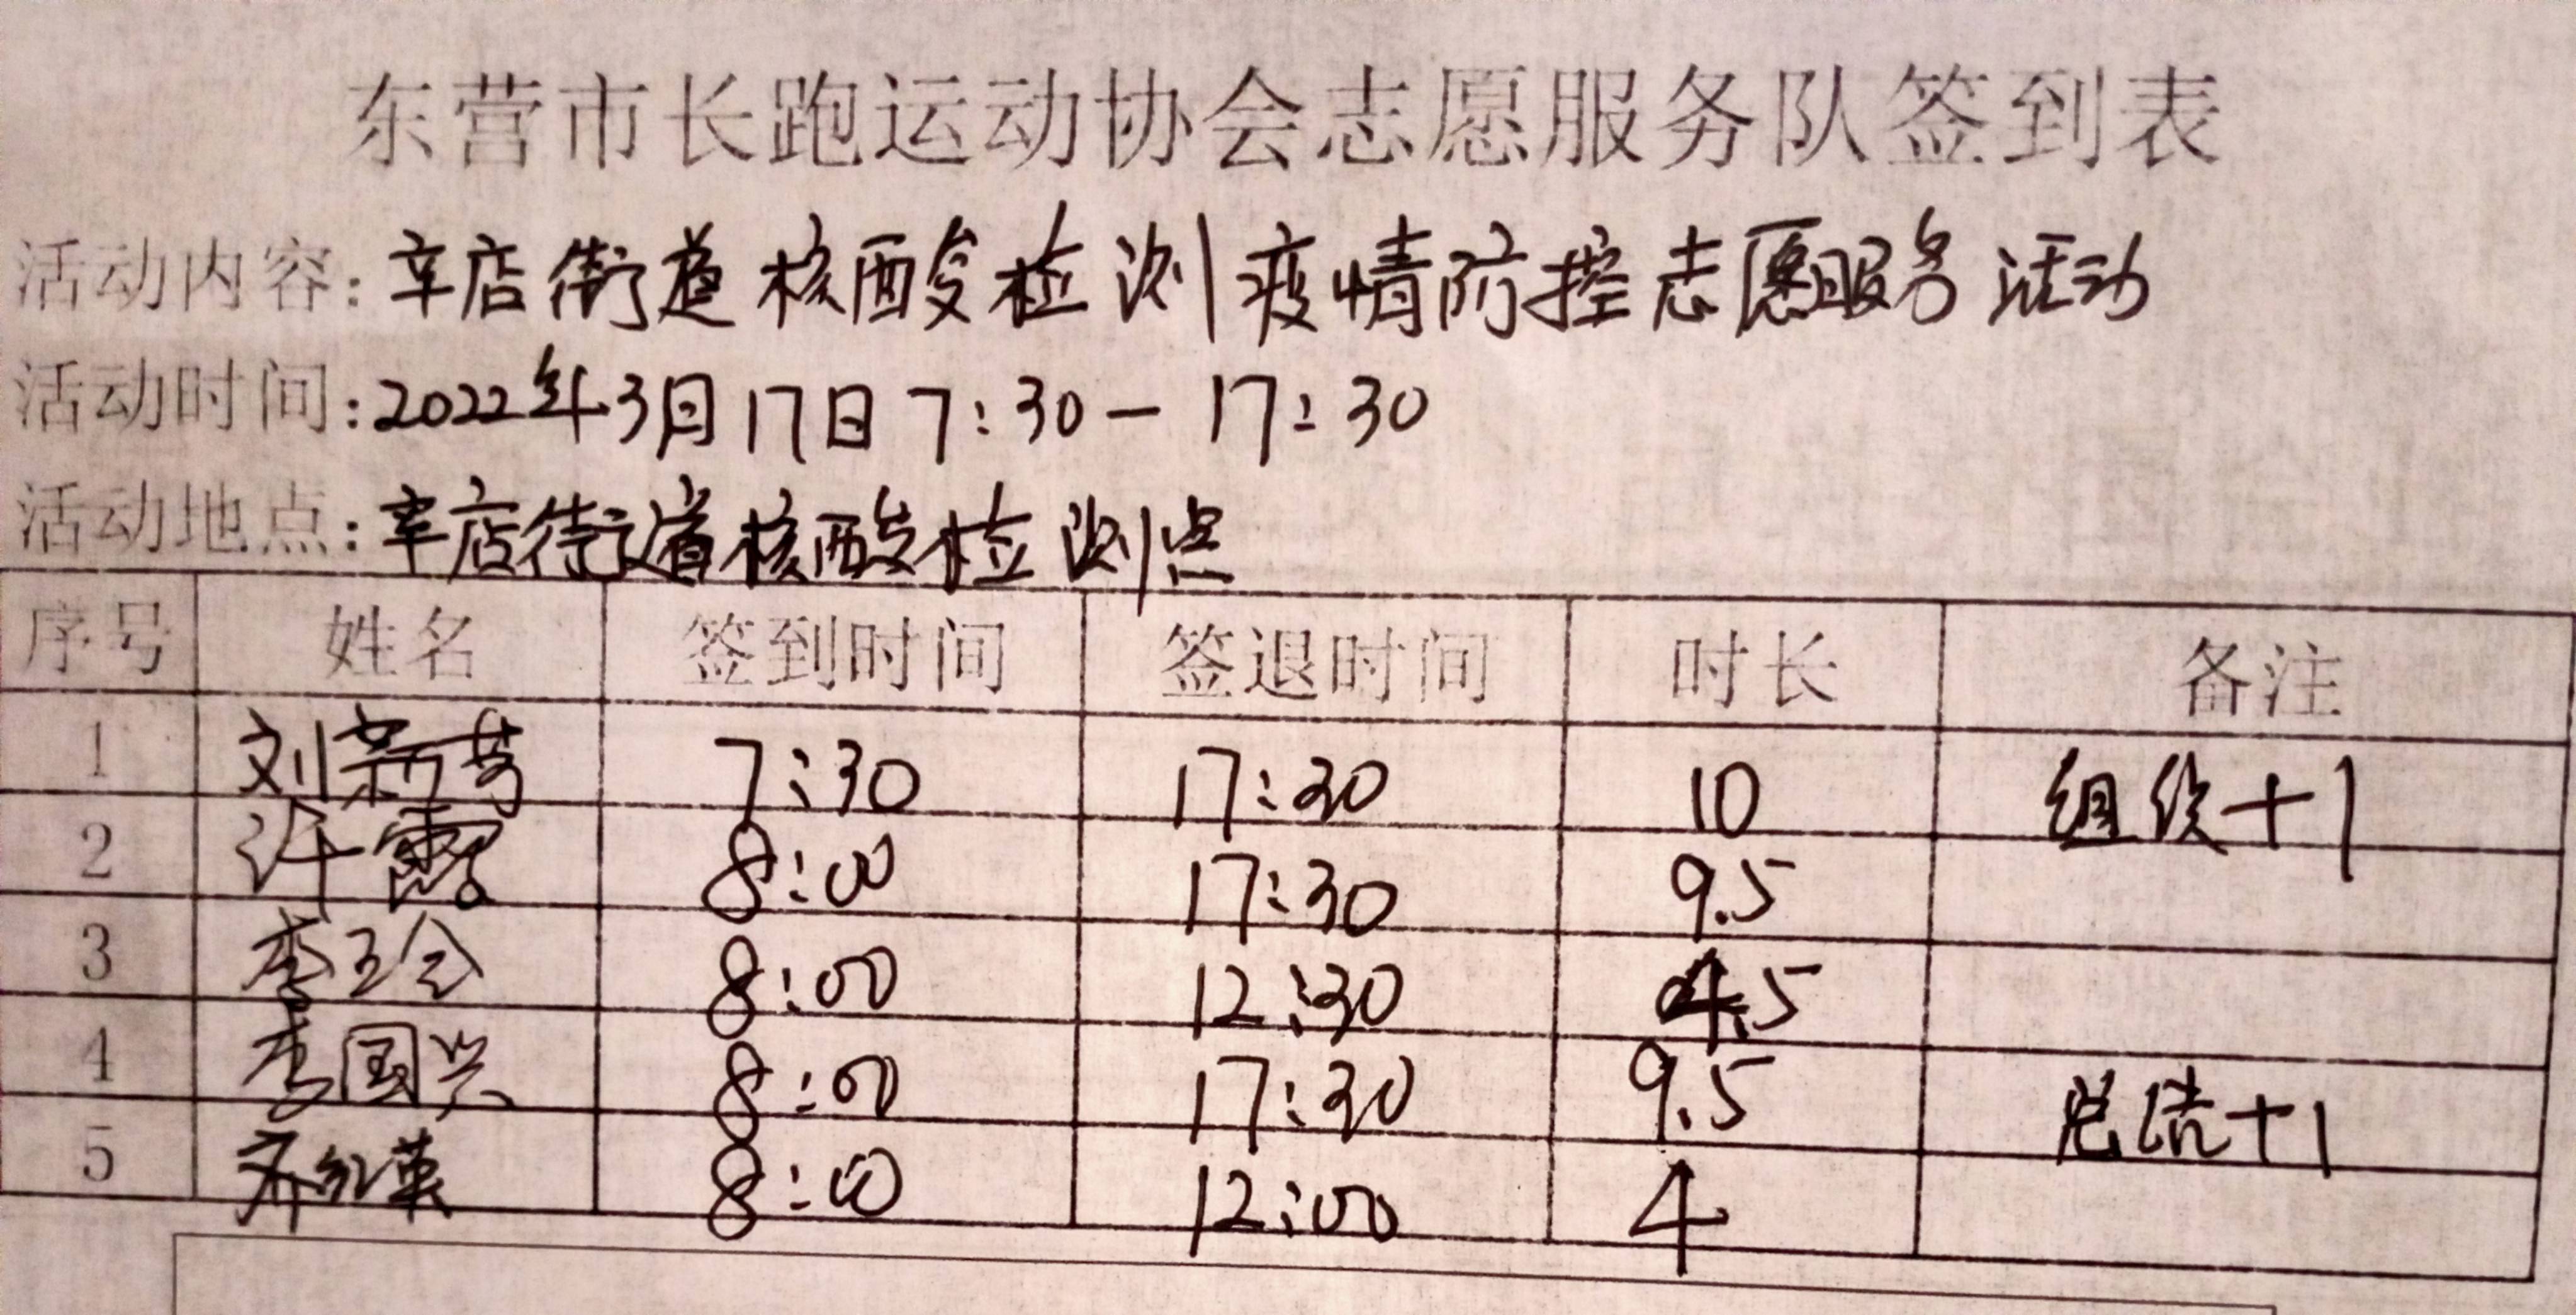 东营市长跑运动协会志愿服务队签到表
活动内容:辛店街道核酸检测疫情防控志愿服务活动
活动时间:2022年3月17日7:30-17:30
活动地点:辛店街道核酸检测点
序号 姓名 签到时间 签退时间 时长 备注
1 刘新芳 7:30 17:30 10 组织+1
2 许霞 8:00 17:30 9.5
3 李玉会 8:00 12:30 4.5
4 李国兴 8:00 17:30 9.5 总结+1
5 齐红英 8:00 12:00 4